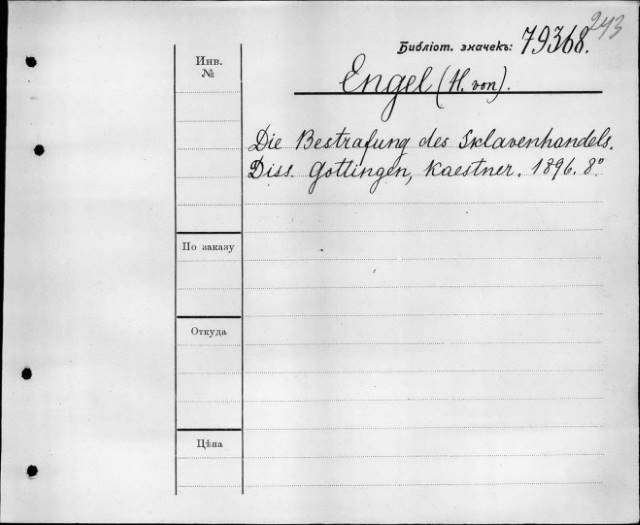 243
Библіот. значекъ: 79368.
Инв.
№
Engel (H. von).
Die Bestrafung des Sklavenhandels.
Diss. Göttingen, Kaestner. 1896. 8°
По заказу
Откуда
Цѣна